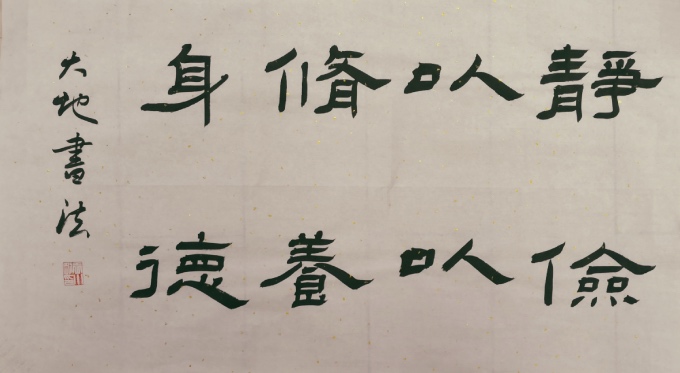 靜以脩身
儉以養德
大地書法